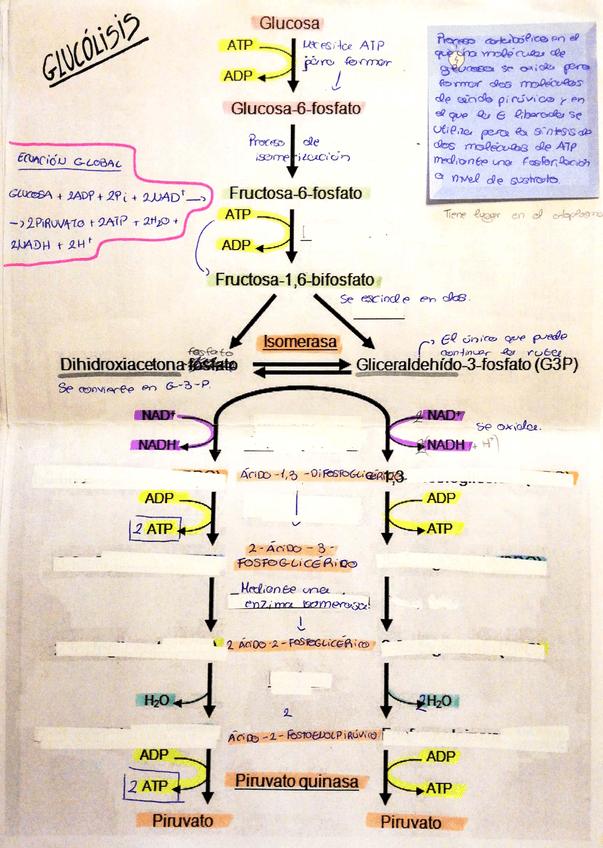 GLUCÓLISIS
Glucosa
ATP
ADP
Necesita ATP
para formar
Glucosa-6-fosfato
Proceso de
isomerización
Fructosa-6-fosfato
ATP
ADP
Fructosa-1,6-bifosfato
Proceso catabólico en el
que una molécula de
glucosa se oxida para
formar dos moléculas
de ácido pirúvico y en
el que la E liberada se
utiliza para la síntesis de
dos moléculas de ATP
mediante una fosforilación
a nivel de sustrato.
Tiene lugar en el citoplasma
ECUACIÓN GLOBAL
GLUCOSA + 2ADP + 2Pi + 2NAD+ →
→ 2PIRUVATO + 2ATP + 2H2O +
2NADH + 2H+
Se escinde en dos.
Isomerasa
fosfato
Dihidroxiacetona-fosfato
Gliceraldehído-3-fosfato (G3P)
El único que puede
continuar la ruta
Se convierte en G-3-P.
NAD+
NADH
2 NAD+
2(NADH + H+)
Se oxida.
ÁCIDO-1,3-DIFOSFOGLICÉRICO
1,3
ADP
2 ATP
ADP
ATP
2-ÁCIDO-3-
FOSFOGLICÉRIDO
Mediante una
enzima isomerasa
2 ÁCIDO-2-FOSFOGLICÉRICO
H2O
2H2O
2
ÁCIDO-2-FOSFOENOLPIRÚVICO
ADP
2 ATP
Piruvato quinasa
ADP
ATP
Piruvato
Piruvato